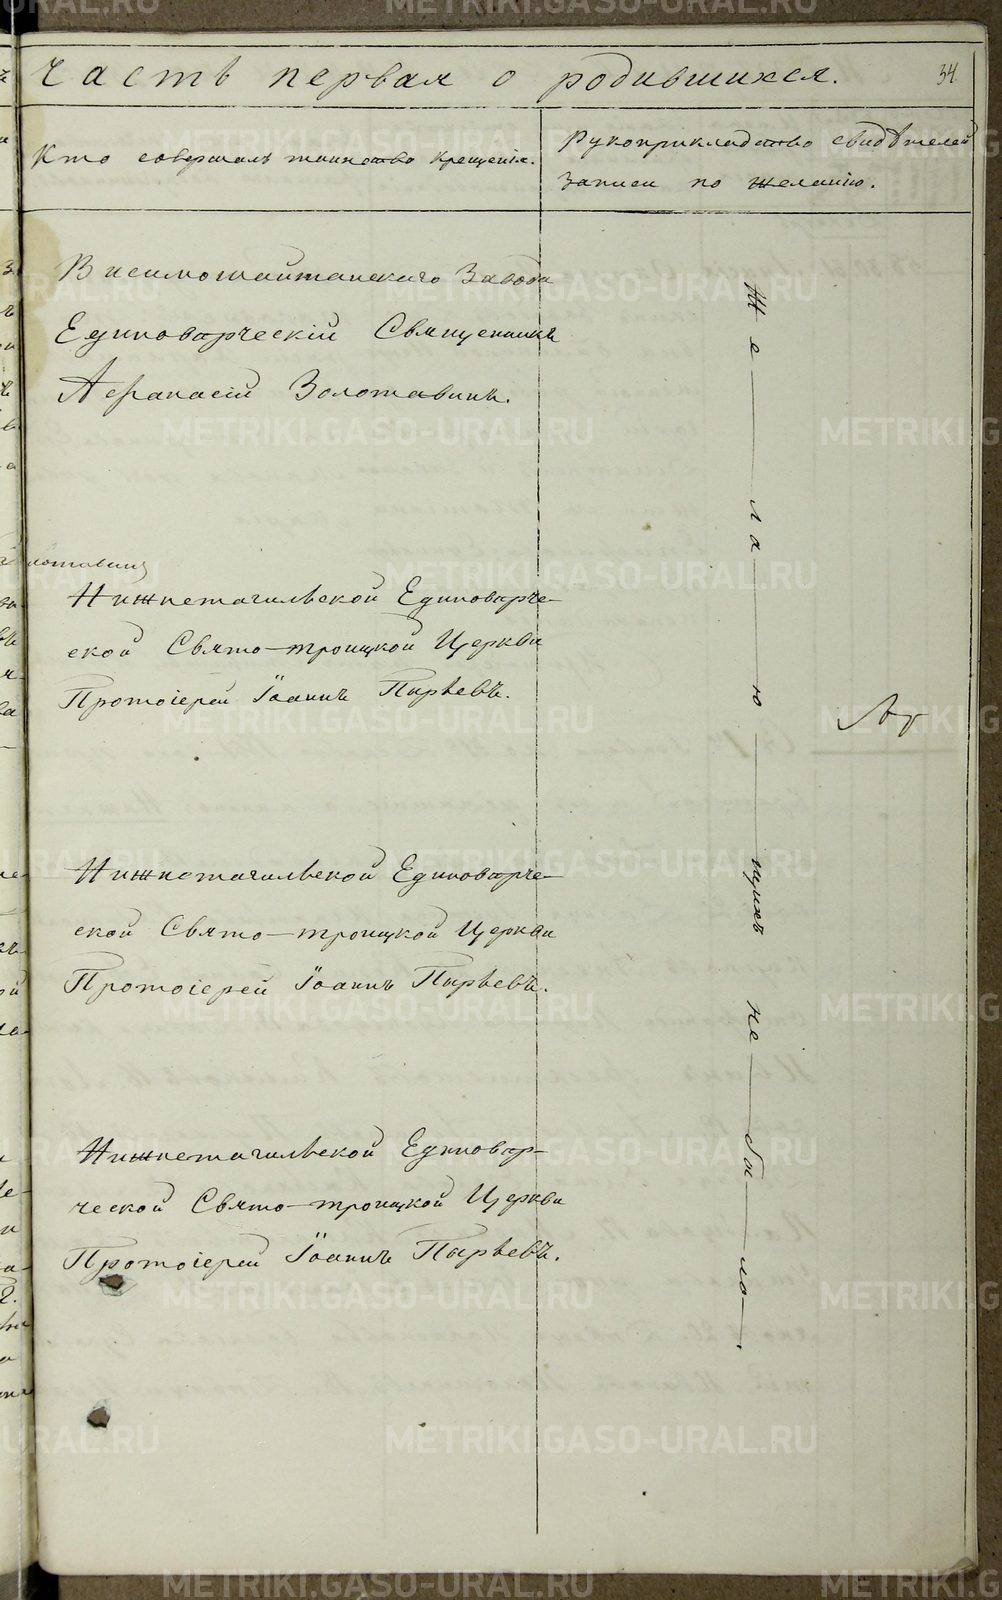 Часть первая о родившихся.
34
Кто совершалъ таинство крещенія.
Рукоприкладство свидѣтелей
записи по желанію.
Висимошайтанскаго Завода
Единовѣрческій Священникъ
Афанасій Золотавинъ.
Нижнетагильской Единовѣрче-
ской Свято-троицкой Церкви
Протоіерей Іоаннъ Пырьевъ.
Нижнетагильской Единовѣрче-
ской Свято-троицкой Церкви
Протоіерей Іоаннъ Пырьевъ.
Нижнетагильской Единовѣр-
ческой Свято-троицкой Церкви
Протоіерей Іоаннъ Пырьевъ.
Же-ла-ю-щихъ не-бы-ло.
METRIKI.GASO-URAL.RU